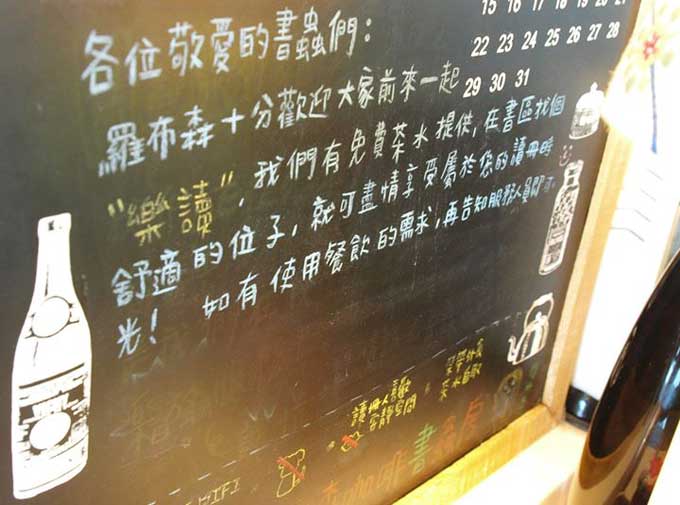 15 16 17 18 19 20 21
22 23 24 25 26 27 28
29 30 31
各位敬愛的書蟲們:
羅布森十分歡迎大家前來一起
"樂讀",我們有免費茶水提供,在書區找個
舒適的位子,就可盡情享受屬於您的讀冊時
光! 如有使用餐飲的需求,再告知服務人員即可
讀冊人喜歡
安靜空間
茶水自取
WIFI
咖啡書蟲房